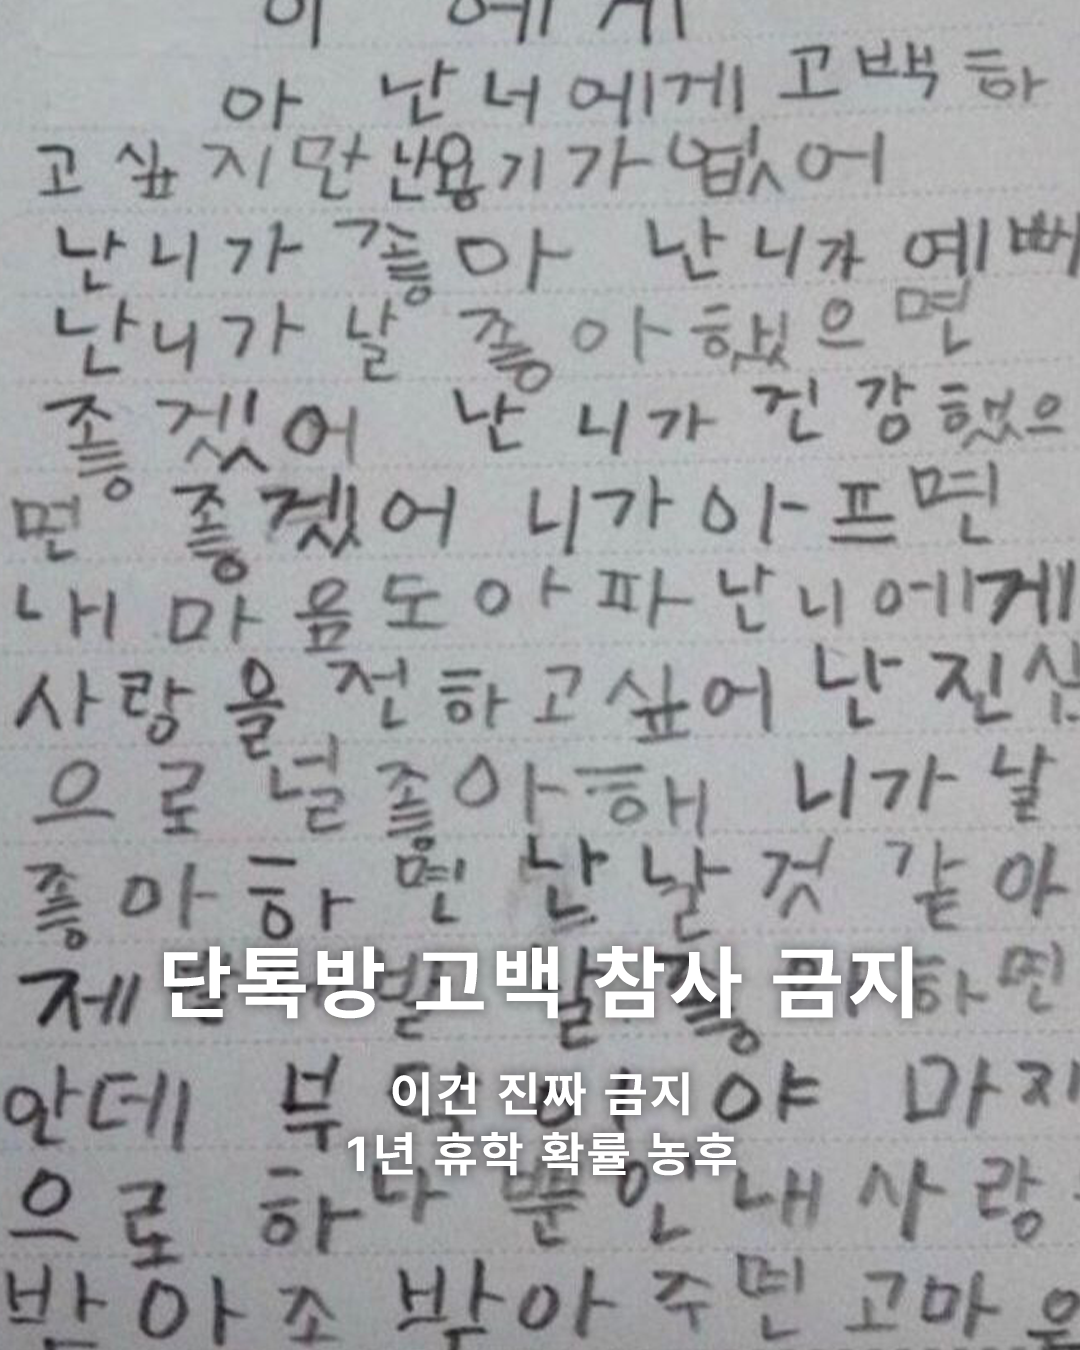 에게
아 난 너에게 고백하
고 싶지만 난 용기가 없어
난 니가 좋아 난 니가 예뻐
난 니가 날 좋아했으면
좋겠어 난 니가 건강했으
면 좋겠어 니가 아프면
내 마음도 아파 난 니에게
사랑을 전하고 싶어 난 진심
으로 널 좋아해 니가 날
좋아하면 난 날 것 같아
단톡방 고백 참사 금지
하면
안데
야 마지
이건 진짜 금지
1년 휴학 확률 농후
으로 하나 뿐인 내 사랑
받아조 받아주면 고마